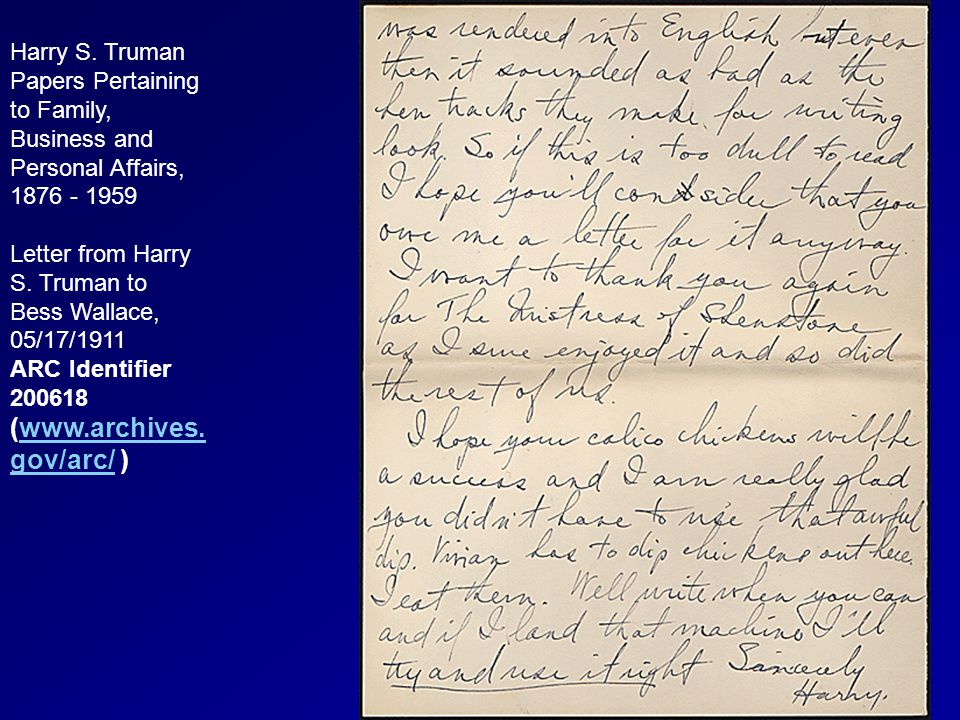 Harry S. Truman
Papers Pertaining
to Family,
Business and
Personal Affairs,
1876 - 1959
Letter from Harry
S. Truman to
Bess Wallace,
05/17/1911
ARC Identifier
200618
(www.archives.
gov/arc/ )
was rendered into English but even
then it sounded as bad as the
hen tracks they make for writing
look. So if this is too dull to read
I hope you'll consider that you
owe me a letter for it anyway.
I want to thank you again
for The Mistress of Shenstone
as I sure enjoyed it and so did
the rest of us.
I hope your calico chickens will be
a success and I am really glad
you didn't have to use that awful
dip. Vivian has to dip chickens out here.
I eat them. Well write when you can
and if I land that machine I'll
try and use it right Sincerely
Harry.